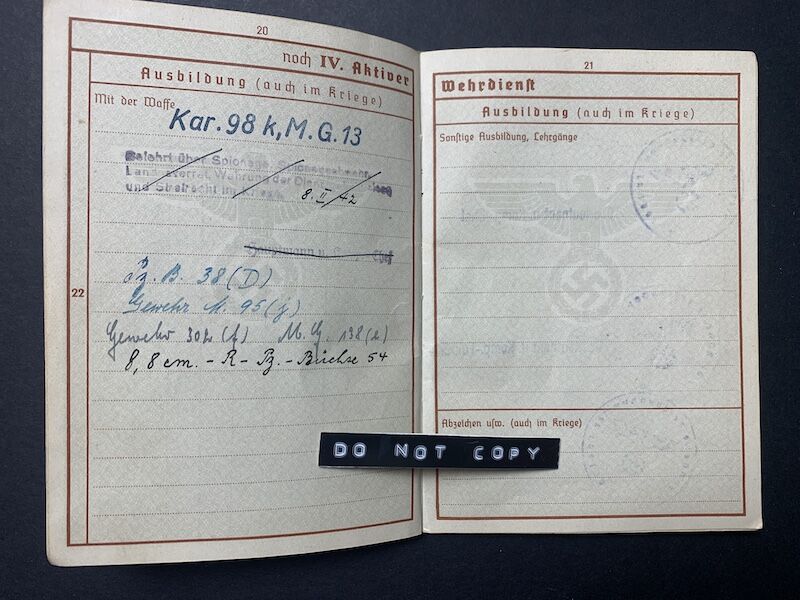 20
noch IV. Aktiver
Ausbildung (auch im Kriege)
Mit der Waffe
Kar. 98 k, M. G. 13
Belehrt über Spionage, Spionageabwehr,
Landesverrat, Wahrung der
und Strafrecht im Kriege 8. II. 42
Hauptmann u. Chef
22
Pz. B. 38 (D)
Gewehr M. 95 (j)
Gewehr 302 (f) M. G. 138 (e)
8,8 cm. - R - Pz. - Büchse 54
21
Wehrdienst
Ausbildung (auch im Kriege)
Sonstige Ausbildung, Lehrgänge
Abzeichen usw. (auch im Kriege)
DO NOT COPY